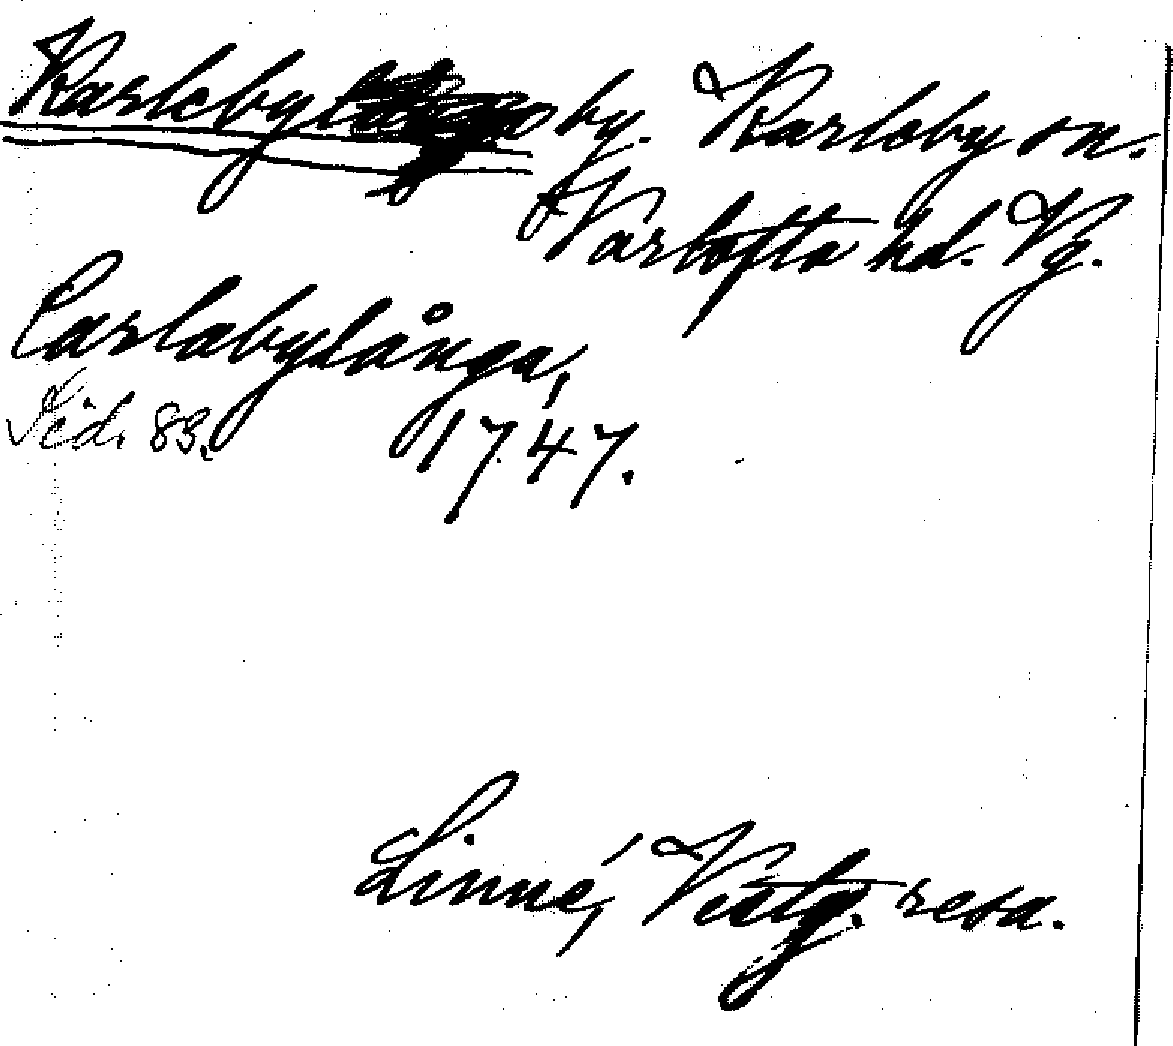 Karleby by. Karleby sn.
Vartofta hd. Vg.
Carlabylånga,
Sid. 83. 1747.
Linné, Västg. resa.